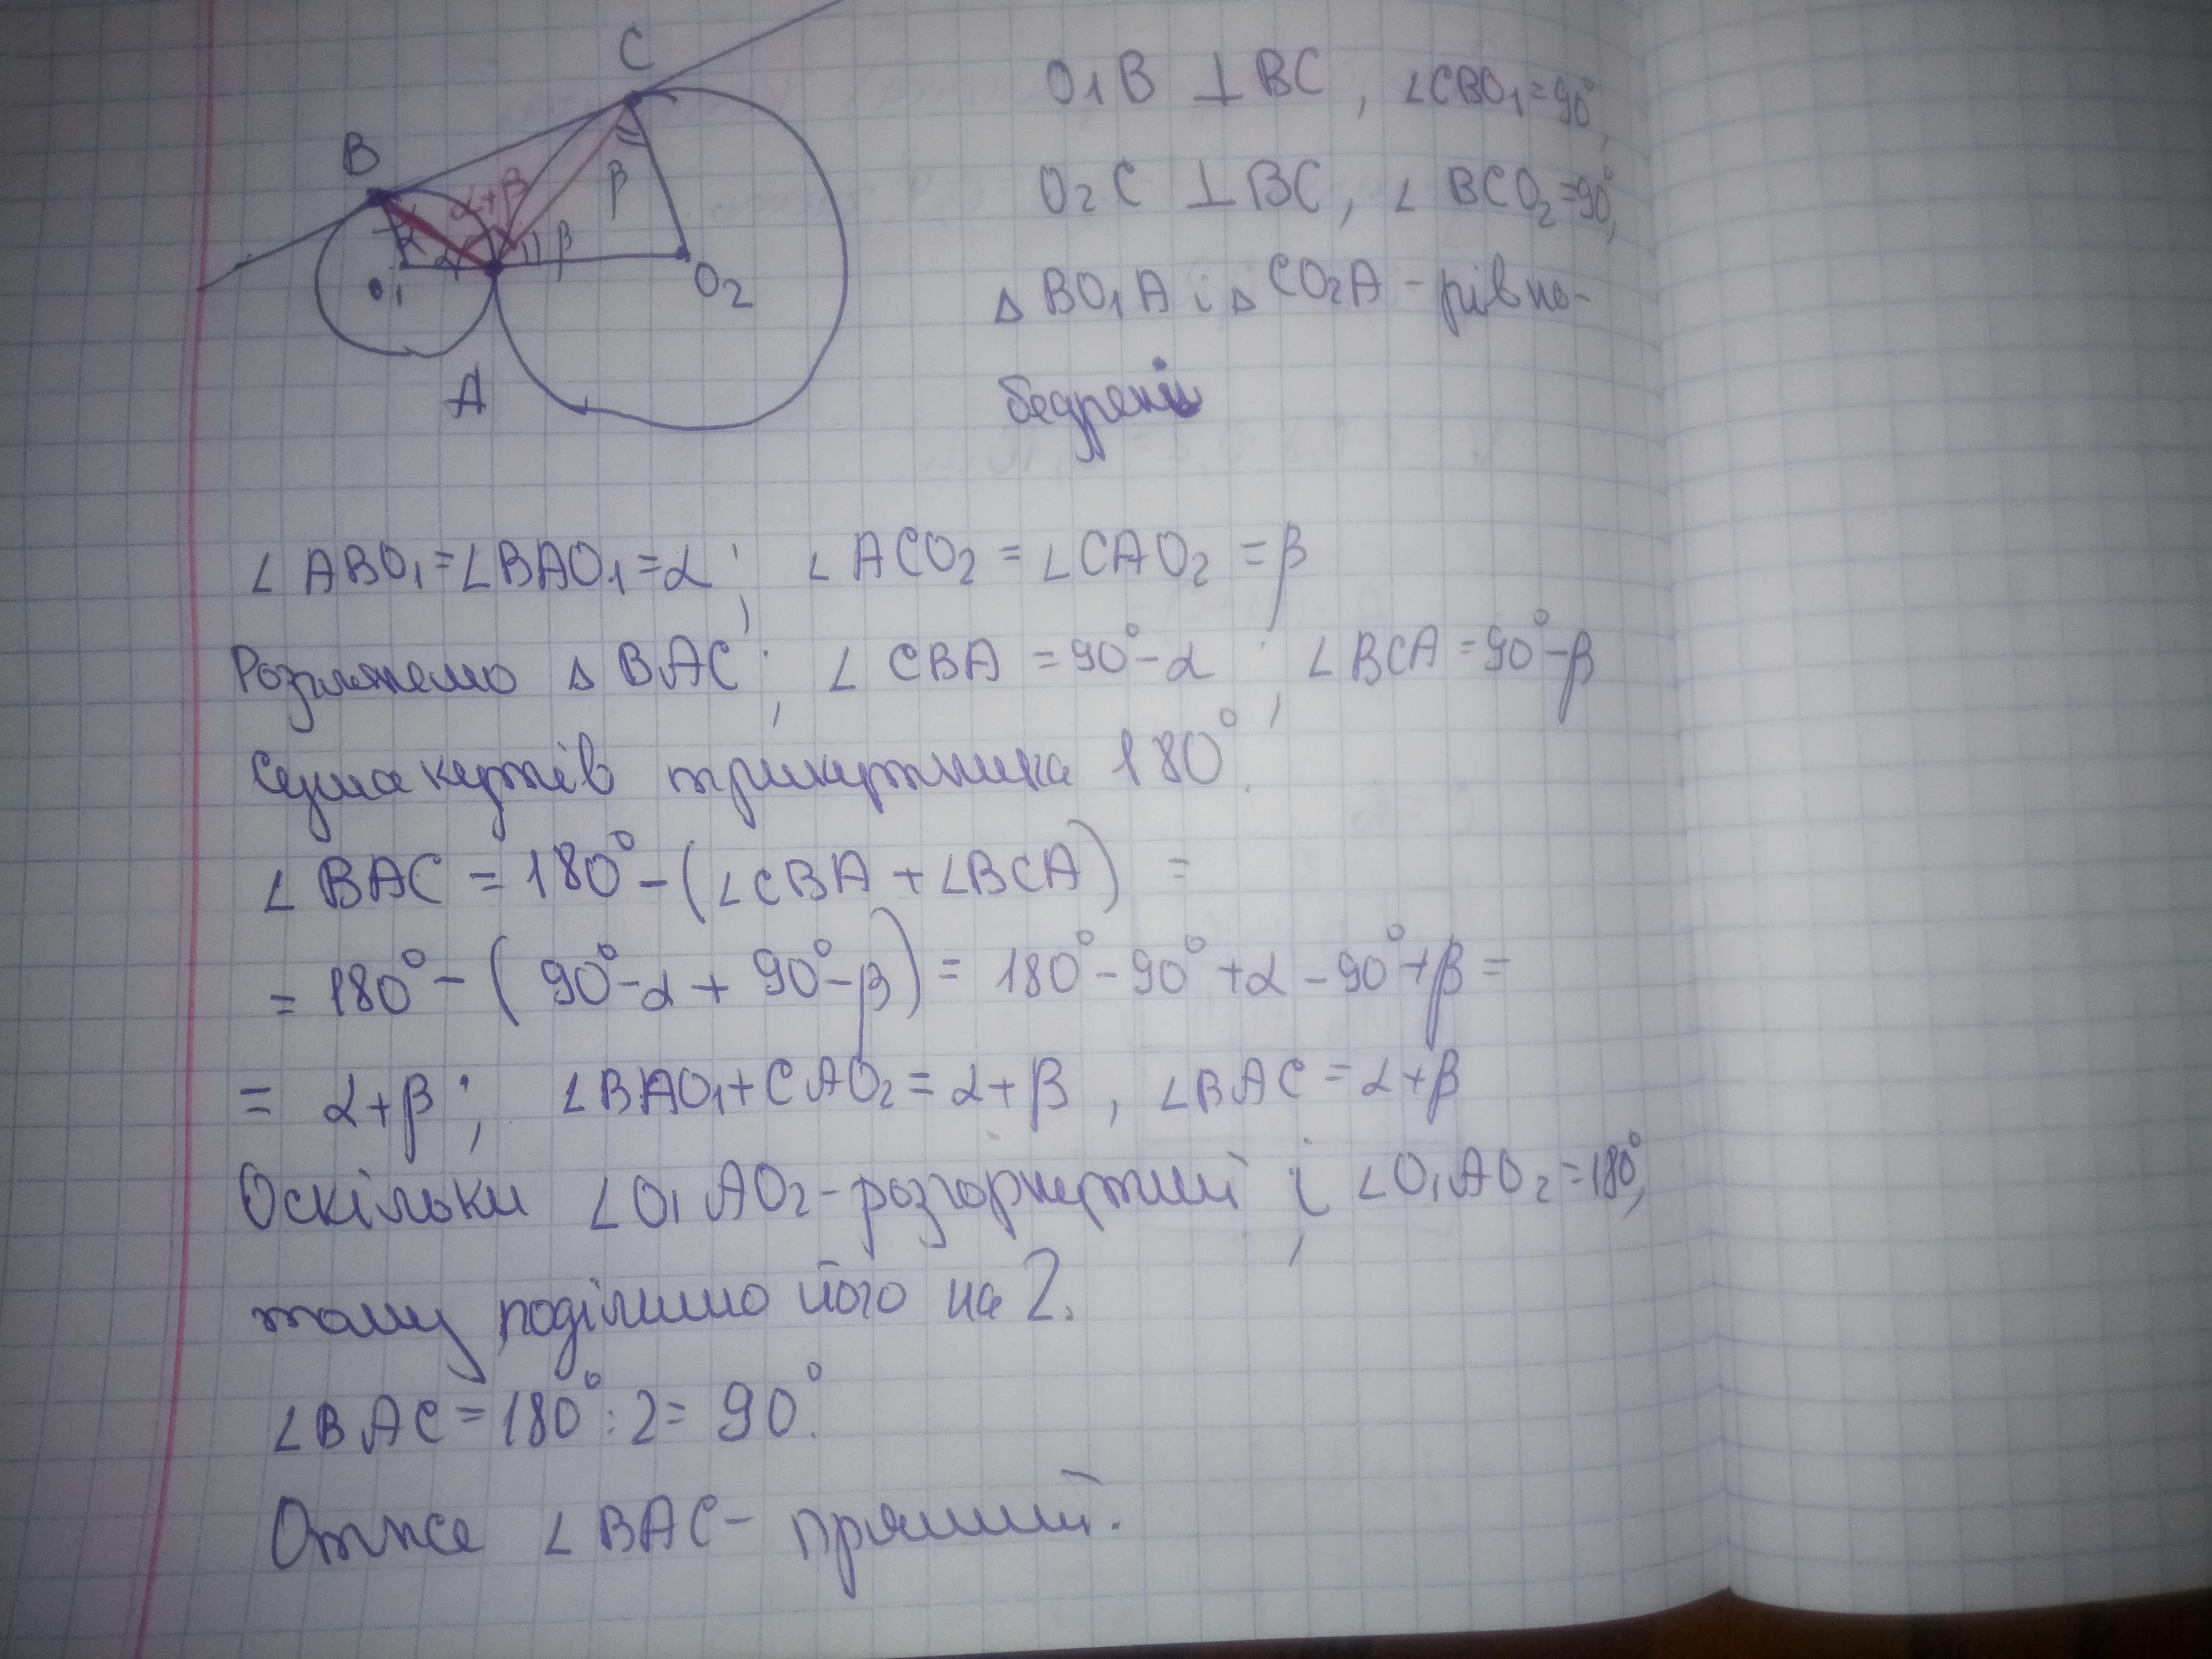 C
B
α+β
β
α
α
β
O1
O2
A
O1B ⊥ BC, ∠CBO1=90°,
O2C ⊥ BC, ∠BCO2=90°,
△BO1A і △CO2A - рівно-
бедрені
∠ABO1=∠BAO1=α; ∠ACO2=∠CAO2=β
Розглянемо △BAC; ∠CBA=90°-α; ∠BCA=90°-β
Сума кутів трикутника 180°.
∠BAC=180°-(∠CBA+∠BCA)=
=180°-(90°-α+90°-β)=180°-90°+α-90°+β=
=α+β; ∠BAO1+CAO2=α+β, ∠BAC=α+β
Оскільки ∠O1AO2-розгорнутий і ∠O1AO2=180°,
тому поділимо його на 2.
∠BAC=180°:2=90°.
Отже ∠BAC- прямий.